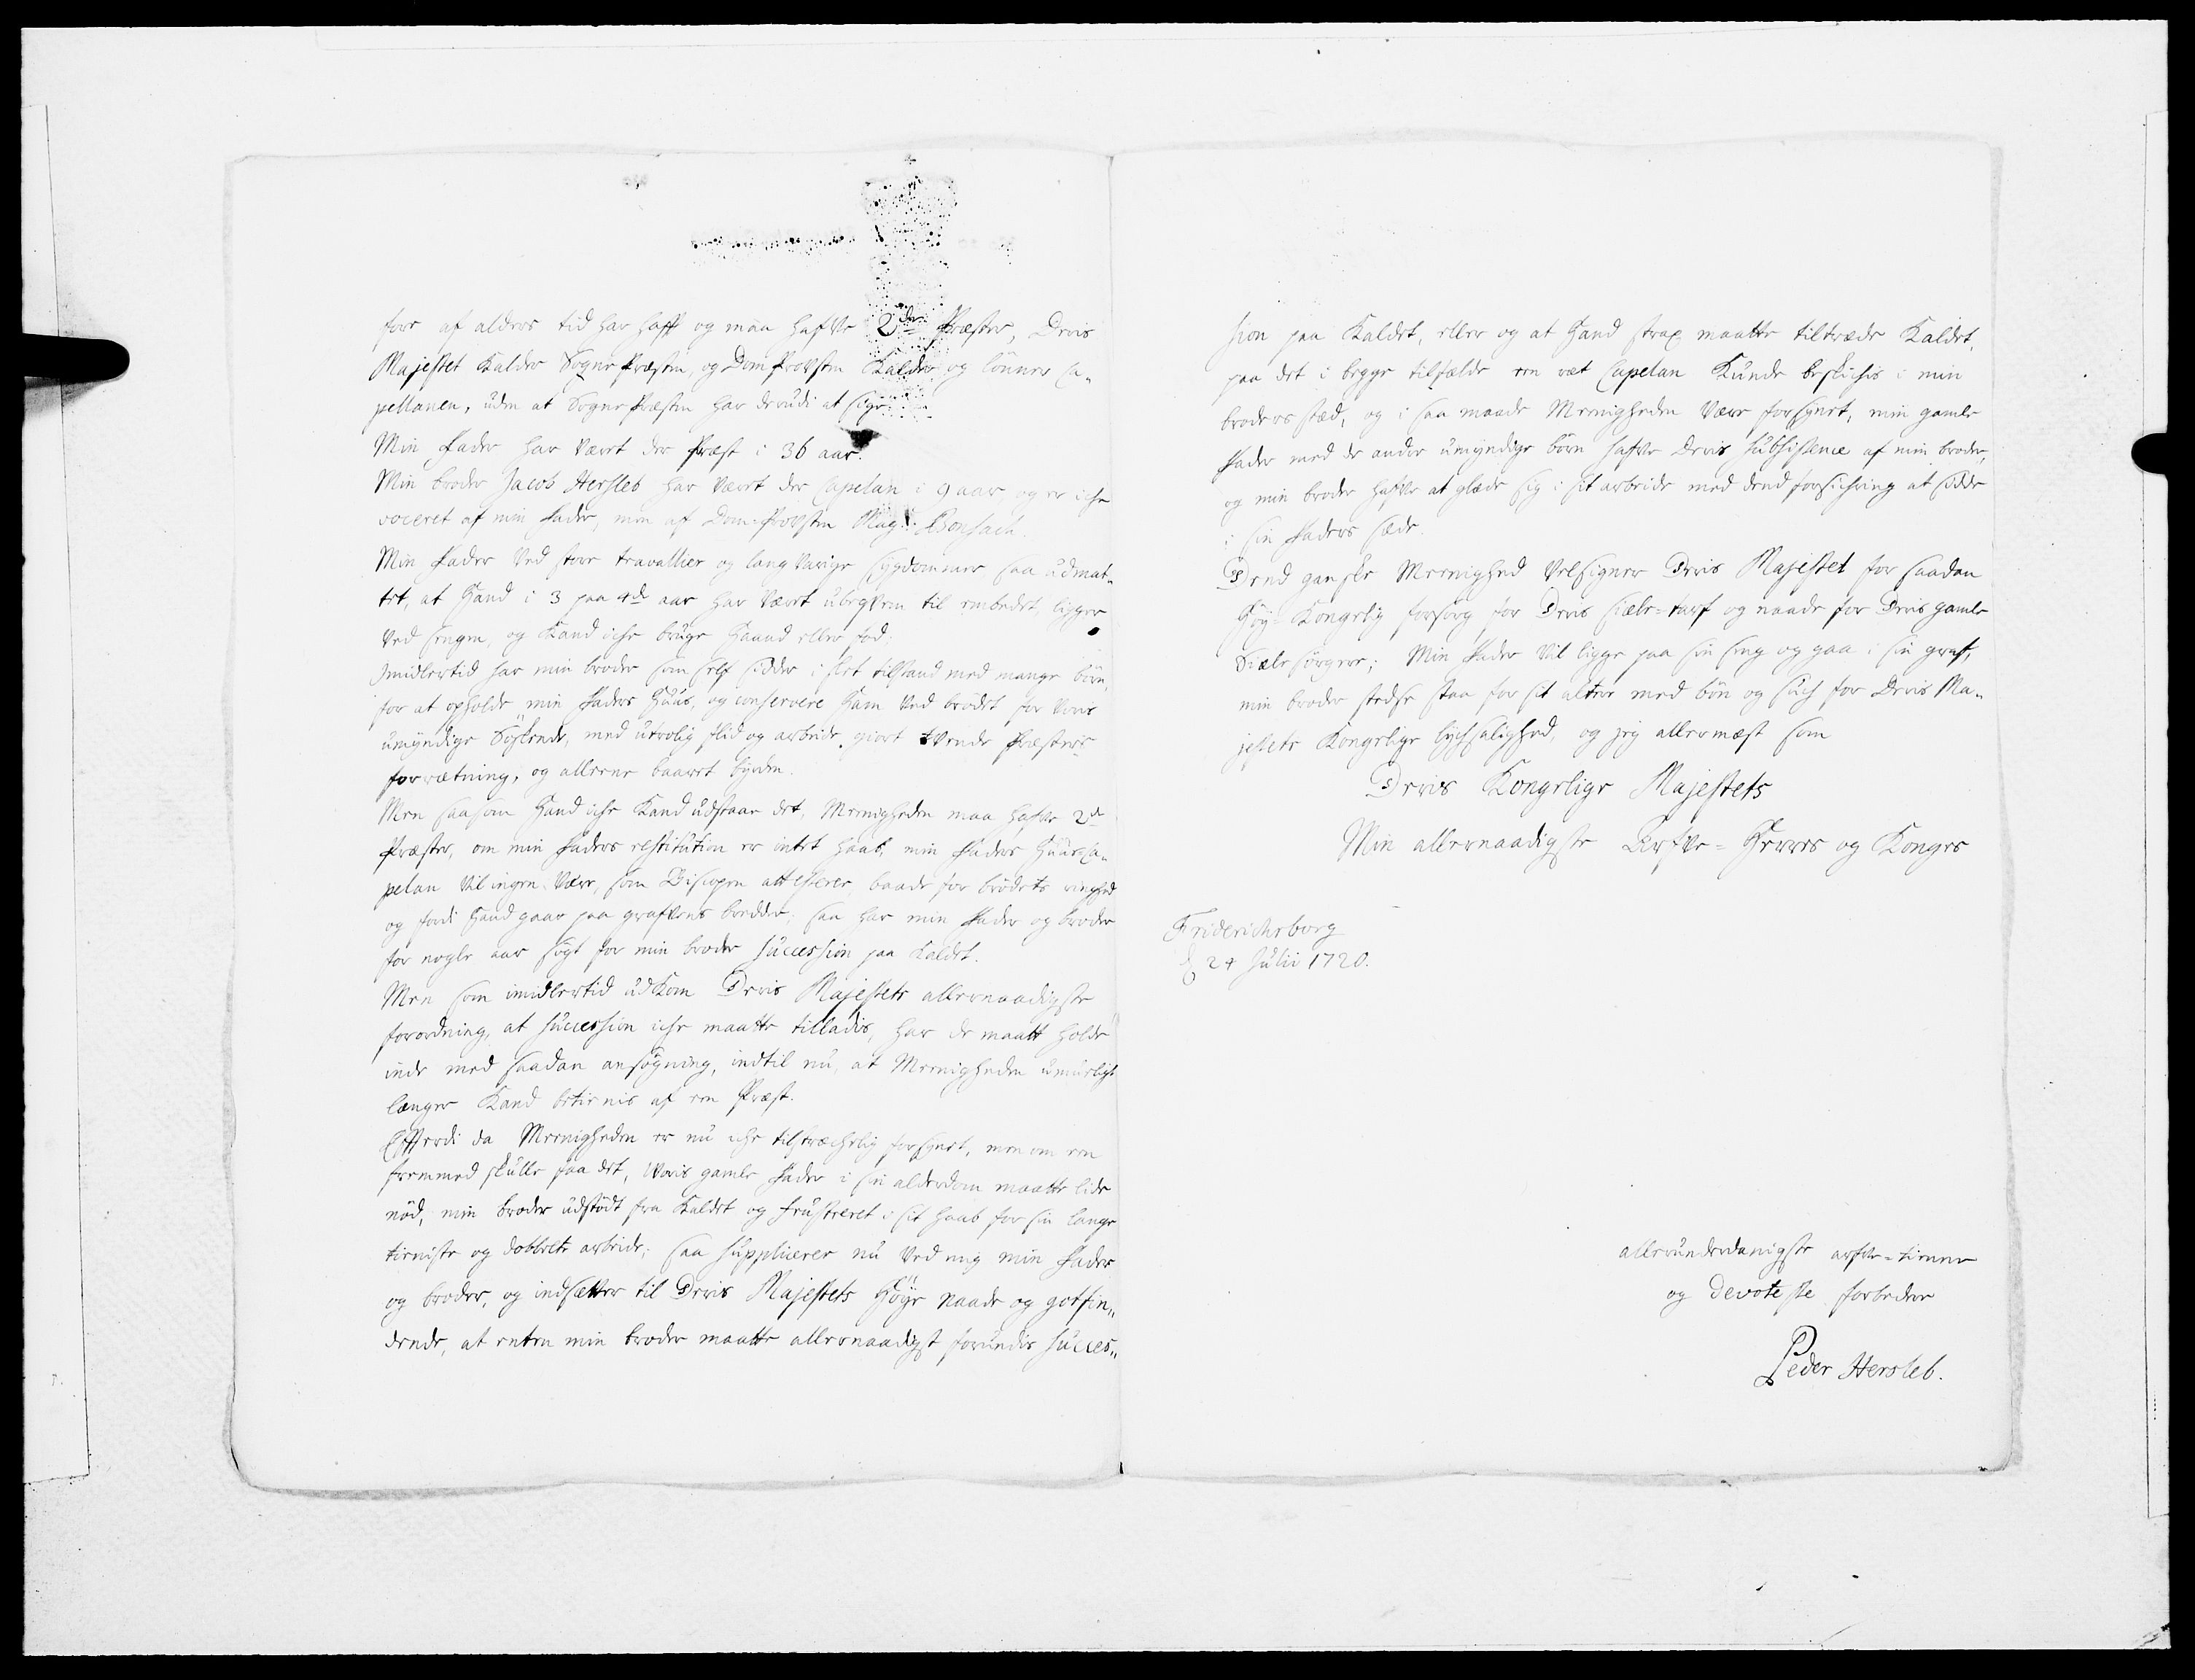 fore af alders tid har hafft og maa hafve 2de Præster, Deris
Majestet Kalder SognePræsten, og DomProvsten Kalder og lönner Ca-
pellanen, uden at SognePræsten har derudi at sige.
Min Fader har været der Præst i 36 aar.
Min broder Jacob Hersleb har været der Capelan i 9 aar og er iche
voceret af min Fader, men af Dom-Provsten Mag: Bonsach.
Min Fader ved store travallier og langvarige sygdommer saa udmat-
tet, at Hand i 3 paa 4de aar har været ubeqvem til embedet, ligger
ved sengen, og Kand iche bruge Haand eller fod.
Imidlertid har min broder som self sidder i slet tilstand med mange börn,
for at opholde min Faders Huus, og conservere Ham ved brödet for voris
umyndige Söskende, med utrolig flid og arbeide giort tvende Præsters
forrætning, og alleene baaret byrden.
Men saasom Hand iche Kand udstaae det, Meenigheden maa hafve 2de
Præster, om min Faders restitution er intet haab, min Faders HuusCa-
pelan vil ingen være, som Biscopen attesterer, baade for brödets ringhed
og fordi Hand gaar paa grafvens bredder; saa har min Fader og broder
for nogle aar sögt for min broder succession paa Kaldet.
Men som imidlertid udkom Deris Majestets allernaadigste
forordning, at succession iche maatte tilladis, har de maatt holde
inde med saadan ansögning, indtil nu, at Meenigheden umueligt
længer Kand betienis af een Præst.
Effterdi da Meenigheden er nu iche tilstræchelig forsynet, men om een
fremmed skulle paa det, Voris gamle Fader i sin alderdom maatte lide
nöd, min broder udstödt fra Kaldet og frustreret i sit haab for sin lange
tieniste og dobbelte arbeide; saa supplicerer nu ved mig min Fader
og broder, og indsætter til Deris Majestets Höye Naade og gotfin-
dende, at enten min broder maatte allernaadigst forundis succes-
sion paa Kaldet, eller og at Hand strax maatte tiltræde Kaldet,
paa det i begge tilfælde een ræt Capelan Kunde beskichis i min
broders stæd, og i saa maade Meenigheden være forsynet, min gamle
Fader med de andre umyndige börn hafve Deris subsistence af min broder,
og min broder hafve at glæde sig i sit arbeide med dend forsichring at sidde
i sin Faders sæde.
Dend gandske Meenighed velsigner Deris Majestet for saadan
Höy-Kongelig forsorg for Deris siæle-tarf og naade for Deris gamle
Siælesörger; Min Fader vil ligge paa sin seng og gaa i sin graf,
min broder stedse staa for sit alter med bön og such for Deris Ma-
jestets Kongelige lychsalighed, og jeg allermæst som
Deris Kongelige Majestets
Min allernaadigste Arfve-Herres og Konges
Friderichsborg
d 24 Julii 1720.
allerunderdanigste arfve-tiener
og devoteste forbeder
Peder Hersleb.